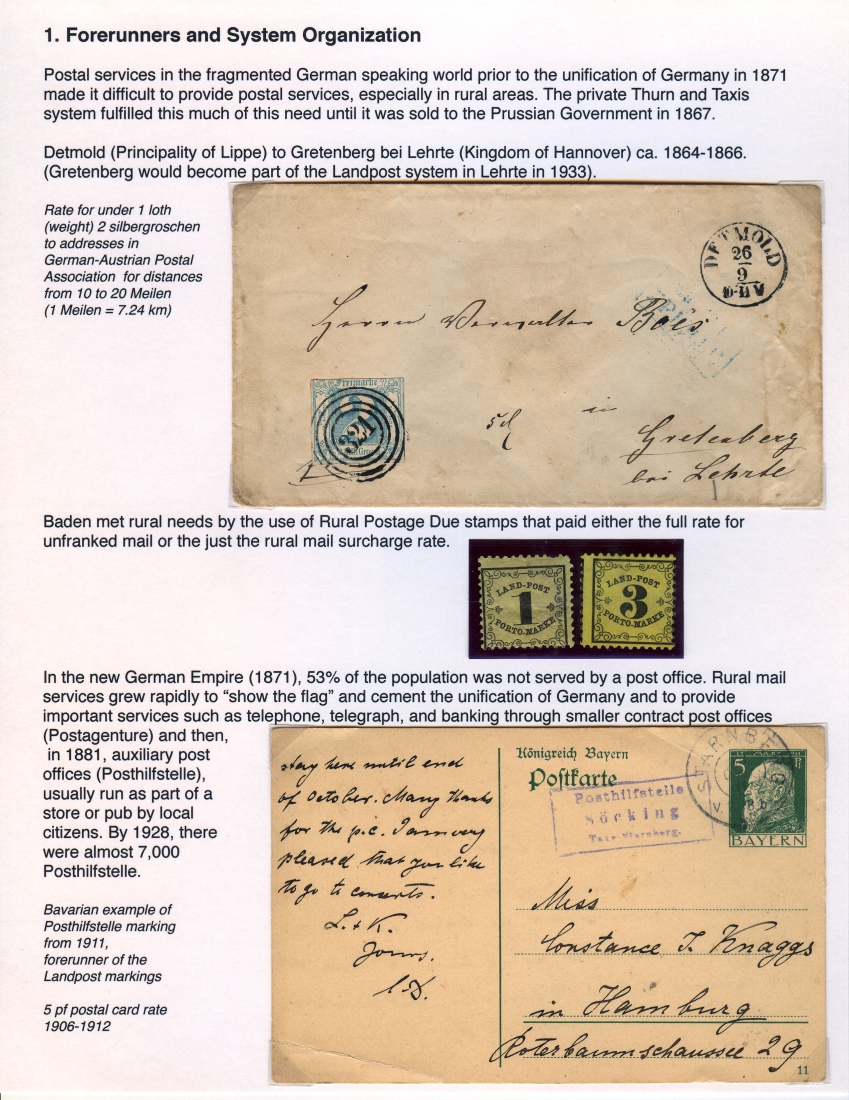 1. Forerunners and System Organization
Postal services in the fragmented German speaking world prior to the unification of Germany in 1871
made it difficult to provide postal services, especially in rural areas. The private Thurn and Taxis
system fulfilled this much of this need until it was sold to the Prussian Government in 1867.
Detmold (Principality of Lippe) to Gretenberg bei Lehrte (Kingdom of Hannover) ca. 1864-1866.
(Gretenberg would become part of the Landpost system in Lehrte in 1933).
Rate for under 1 loth
(weight) 2 silbergroschen
to addresses in
German-Austrian Postal
Association for distances
from 10 to 20 Meilen
(1 Meilen = 7.24 km)
DETMOLD
26
9
Herrn Verwalter Boës
Freimarke
321
in
Gretenberg
bei Lehrte
Baden met rural needs by the use of Rural Postage Due stamps that paid either the full rate for
unfranked mail or the just the rural mail surcharge rate.
LAND-POST
1
PORTO-MARKE
LAND-POST
3
PORTO-MARKE
In the new German Empire (1871), 53% of the population was not served by a post office. Rural mail
services grew rapidly to “show the flag” and cement the unification of Germany and to provide
important services such as telephone, telegraph, and banking through smaller contract post offices
(Postagenture) and then,
in 1881, auxiliary post
offices (Posthilfstelle),
usually run as part of a
store or pub by local
citizens. By 1928, there
were almost 7,000
Posthilfstelle.
Bavarian example of
Posthilfstelle marking
from 1911,
forerunner of the
Landpost markings
5 pf postal card rate
1906-1912
stay here until end
of October. Many thanks
for the p.c. I am very
pleased that you like
to go to concerts.
L. + K.
Yours.
Königreich Bayern
Postkarte
Posthilfstelle
Söcking
Taxe Starnberg.
STARNBERG
5 Pf
BAYERN
Miss
Constance T. Knaggs
in Hamburg
Roterbaumschaussee 29
11